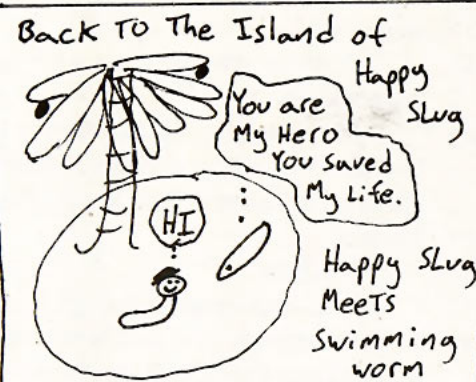 Back To The Island of
Happy
Slug
You are
My Hero
You saved
My Life.
HI
Happy Slug
Meets
Swimming
worm